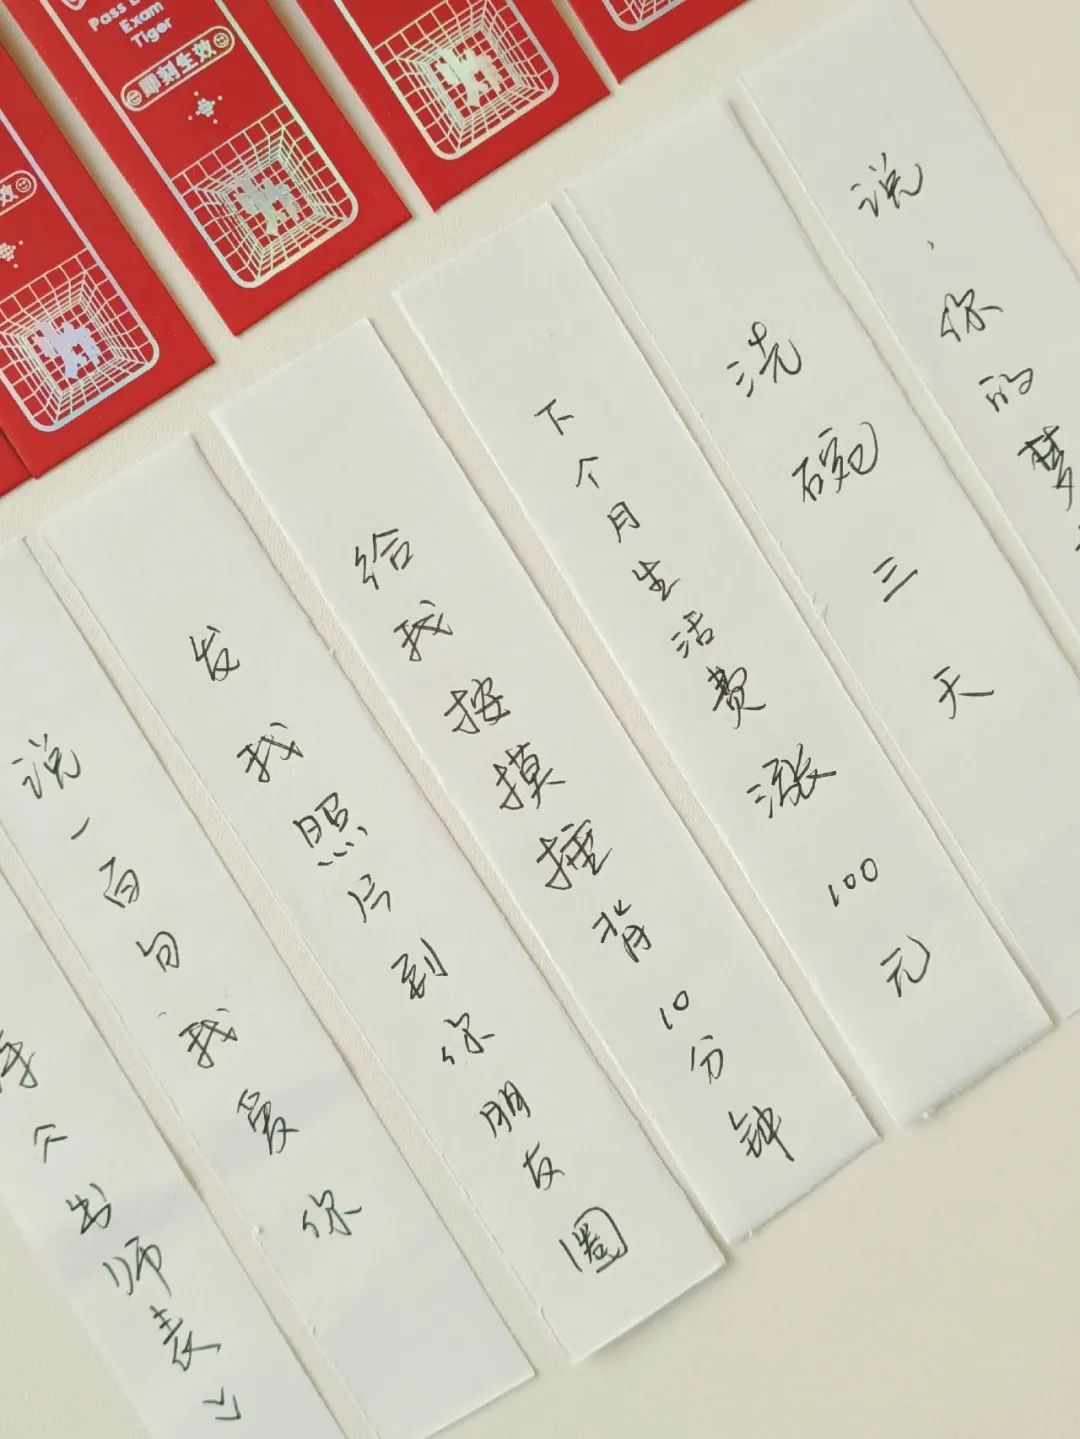 Pass
Exam
Tiger
即刻生效
效
个出师表》
说一百句我爱你
发我照片到你朋友圈
给我按摸捶背10分钟
下个月生活费涨100元
洗碗三天
说，你的梦